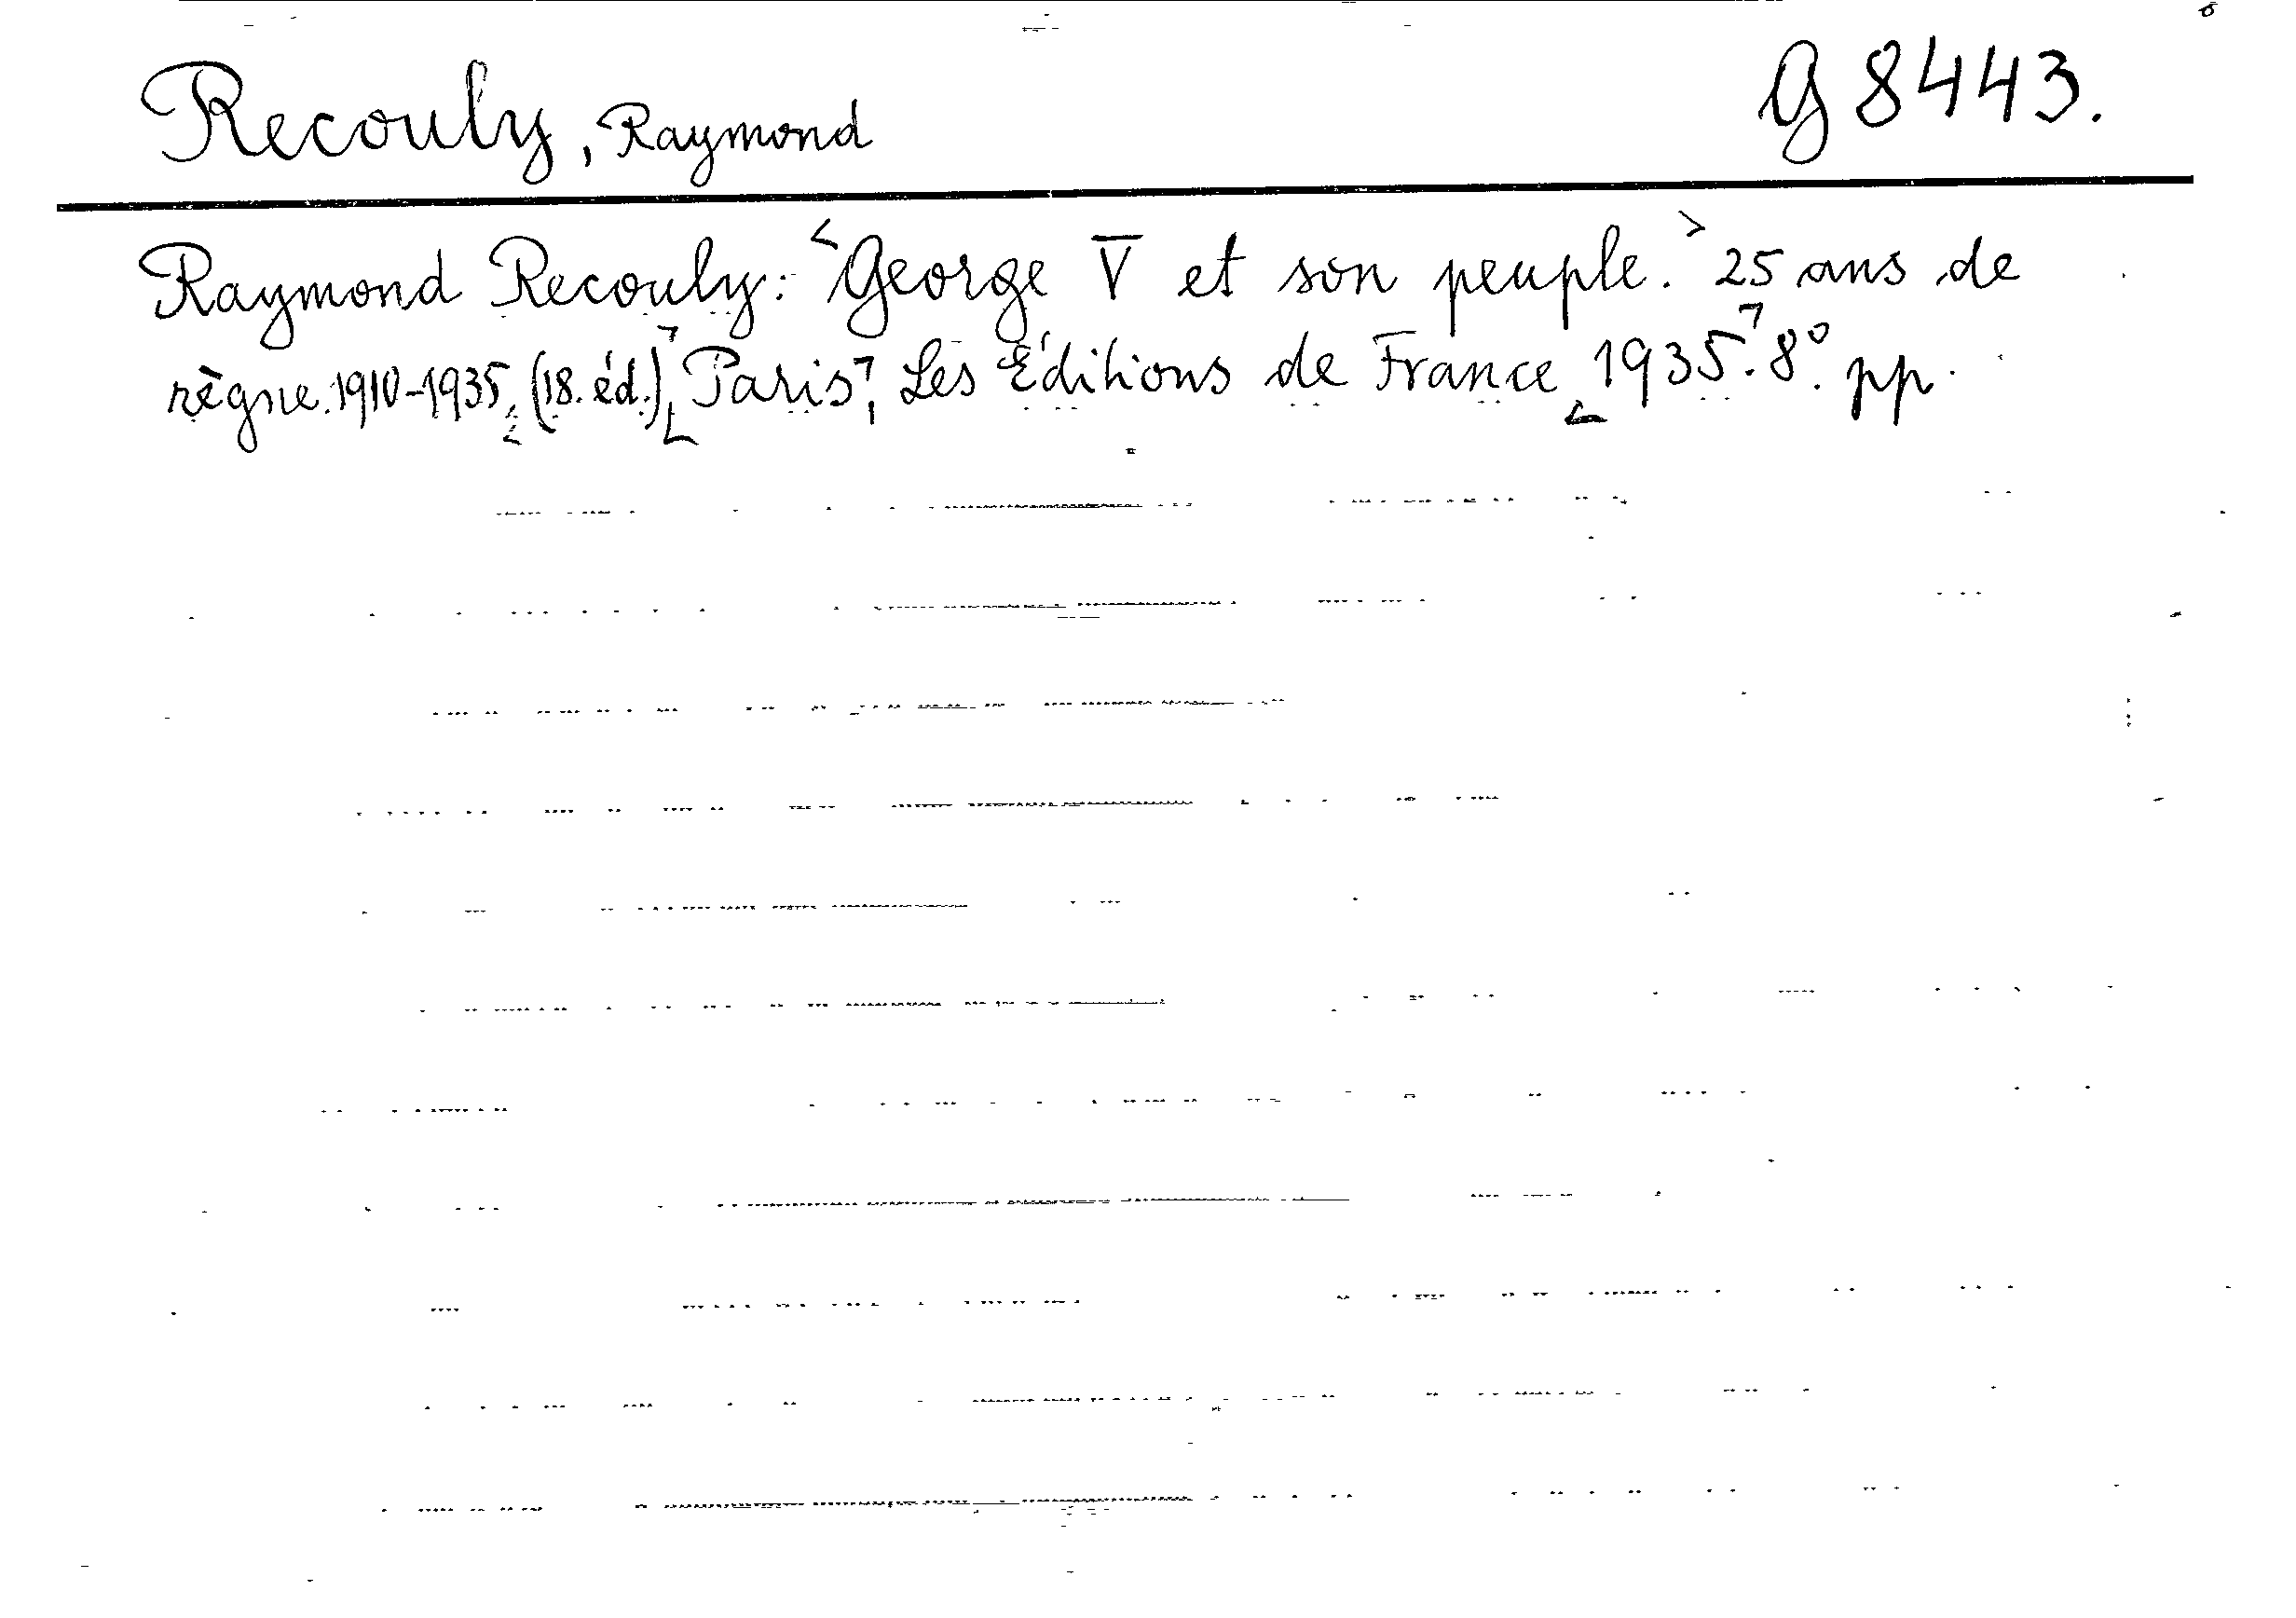 Recouly, Raymond G 8443.
Raymond Recouly: <George V et son peuple.> 25 ans de
règne. 1910-1935. (18. éd.) Paris, Les Éditions de France 1935. 8°. pp.